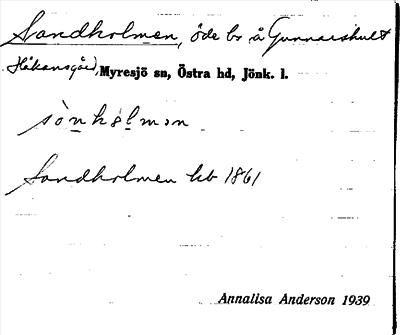 Sandholmen, öde bs å Gunnarshult
Håkansgård, Myresjö sn, Östra hd, Jönk. l.
sònhòlmən
Sandholmen hb 1861
Annalisa Anderson 1939